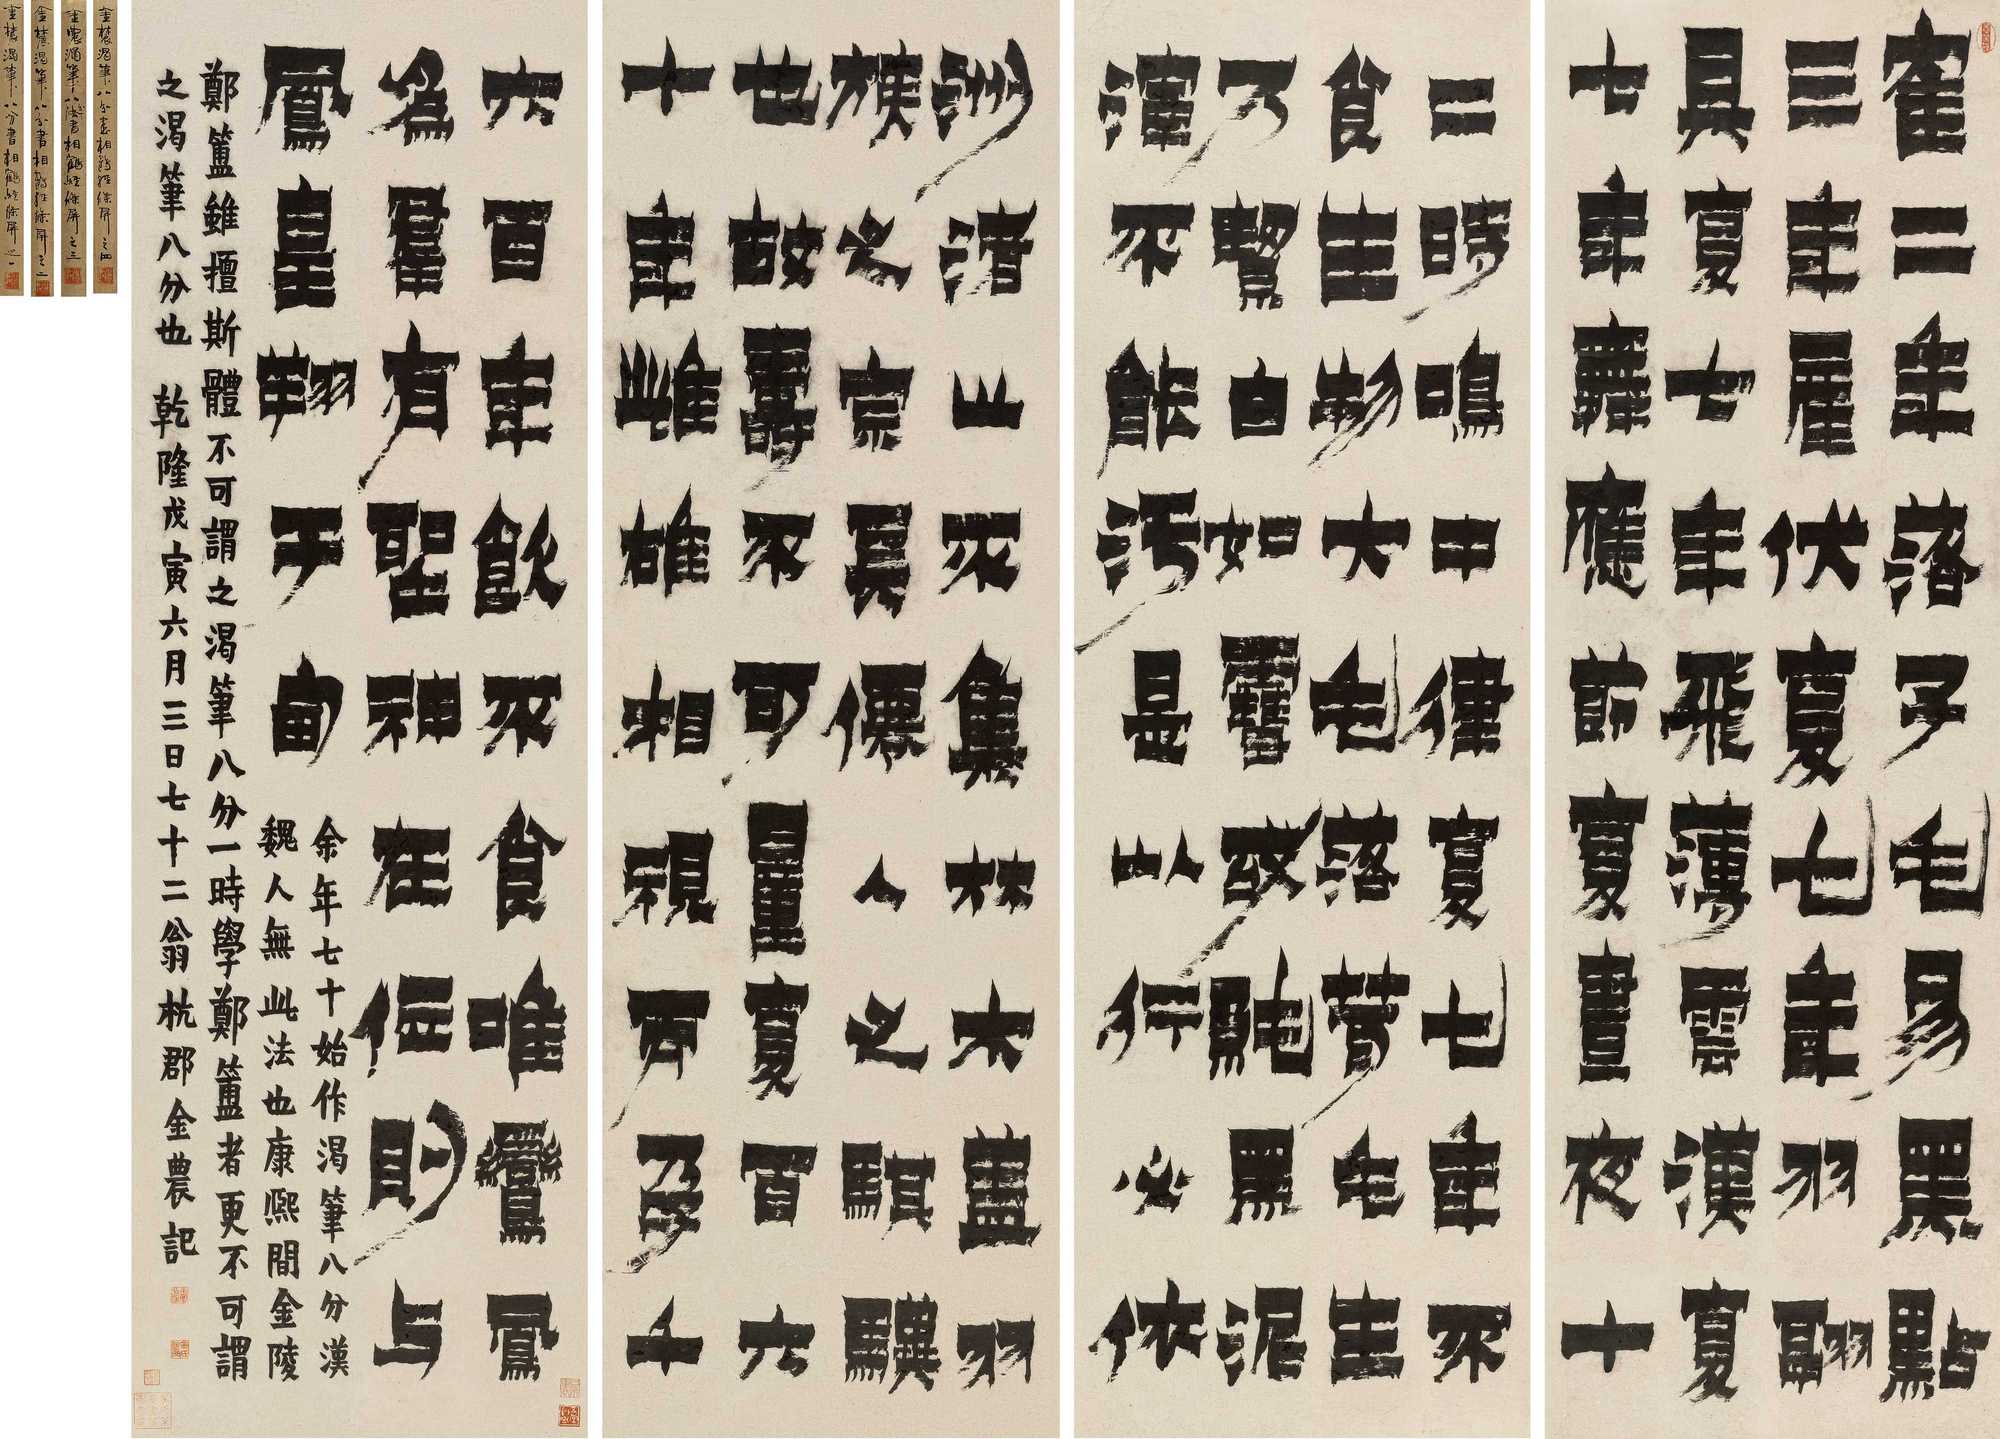 崔二年落子毛易黑點
三年產伏复七年羽翮
具复七年飛薄雲漢复
七年舞應節复晝夜十
二時鳴中律复七年不
食生物大毛落茸毛生
乃潔白如雪故黑泥
滓不能污是以行必依
洲渚山不集林木蓋羽
族之宗真僊人之騏驥
也故壽不可量复百六
十年雌雄相視而孕千
六百年飲不食唯鸞鳳
為羣有聖神在位則与
鳳皇翔于甸
余年七十始作渴筆八分漢
魏人無此法也康熙間金陵
鄭簠雖擅斯體不可謂之渴筆八分一時學鄭簠者更不可謂
之渴筆八分也 乾隆戊寅六月三日七十二翁杭郡金農記
金農渴筆八分書相鶴經條屏之四
金農渴筆八分書相鶴經條屏之三
金農渴筆八分書相鶴經條屏之二
金農渴筆八分書相鶴經條屏之一